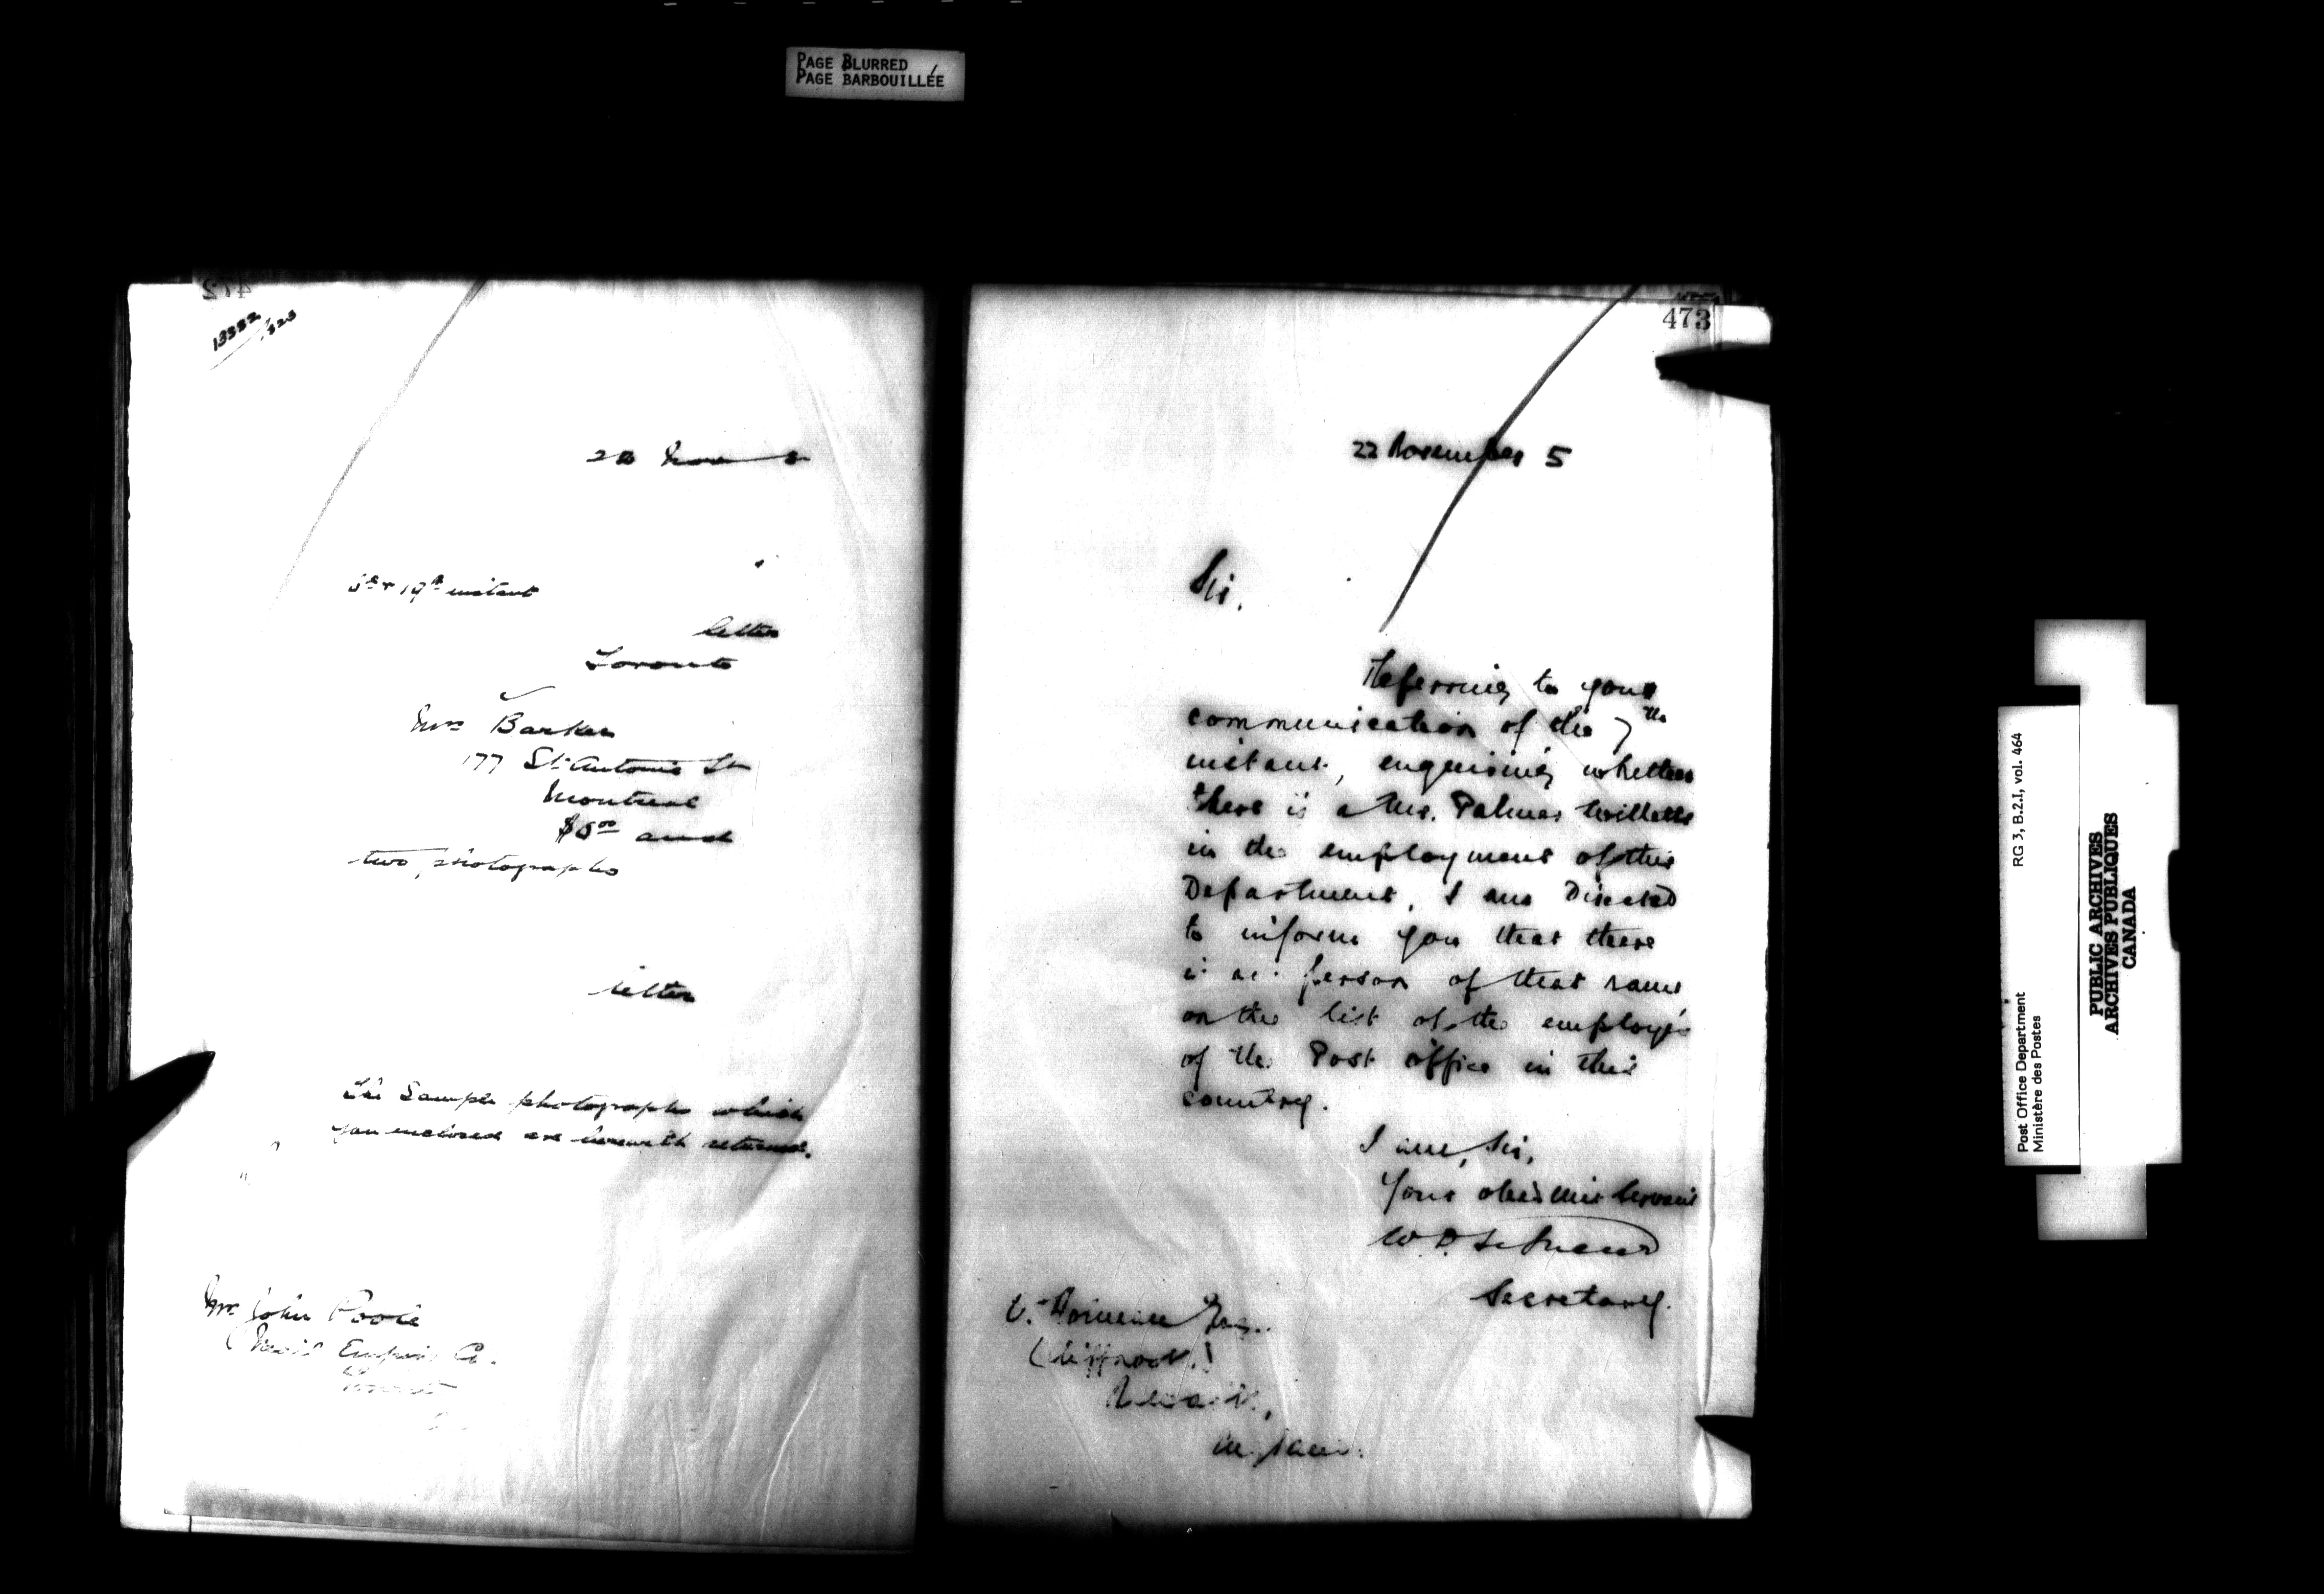 PAGE BLURRED
PAGE BARBOUILLÉE
472
13382
/323
22
19th instant
letter
Toronto
Mrs Barker
177 St. Antoine St
Montreal
and
two photographs
letter
The Sample photographs which
you enclosed are herewith returned.
Mr John Poole
Empire Co.
473
22 November 5
Sir,
Referring to your
communication of the 7th
instant, enquiring whether
there is a Mr. Palmer Willetts
in the employment of this
Department, I am Directed
to inform you that there
is no person of that name
on the list of the employés
of the Post office in this
country.
I am, Sir,
Your obedient Servant
W D LeSueur
Secretary.
Esq.
England.
Post Office Department
Ministère des Postes
RG 3, B.2.I, vol. 464
PUBLIC ARCHIVES
ARCHIVES PUBLIQUES
CANADA